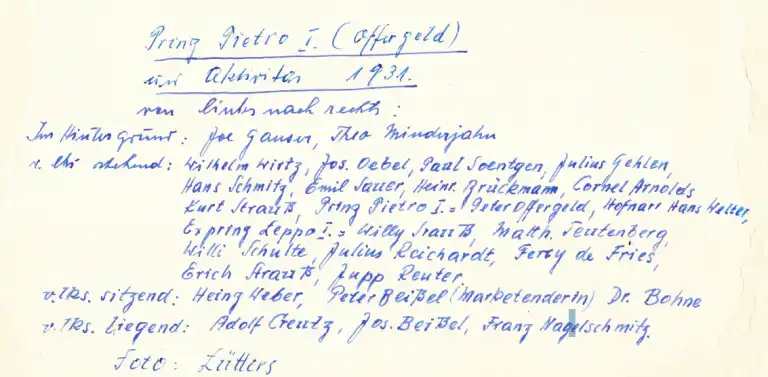 Prinz Pietro I. (Offergeld)
und Aktivitas 1931.
von links nach rechts:
Im Hintergrund: Joe Gauser, Theo Minderjahn
v. lks stehend: Wilhelm Wirtz, Jos. Oebel, Paul Soentgen, Julius Gehlen,
Hans Schmitz, Emil Sauer, Heinr. Brückmann, Cornel Arnolds
Kurt Strauß, Prinz Pietro I. = Peter Offergeld, Hofnarr Hans Welter,
Exprinz Leppo I. = Willy Strauß, Matth. Teutenberg,
Willi Schulte, Julius Reichardt, Ferdy de Fries,
Erich Strauß, Jupp Reuter,
v. lks. sitzend: Heinz Weber, Peter Beißel (Marketenderin) Dr. Bohne
v. lks. liegend: Adolf Creutz, Jos. Beißel, Franz Nagelschmitz.
Foto: Lütters